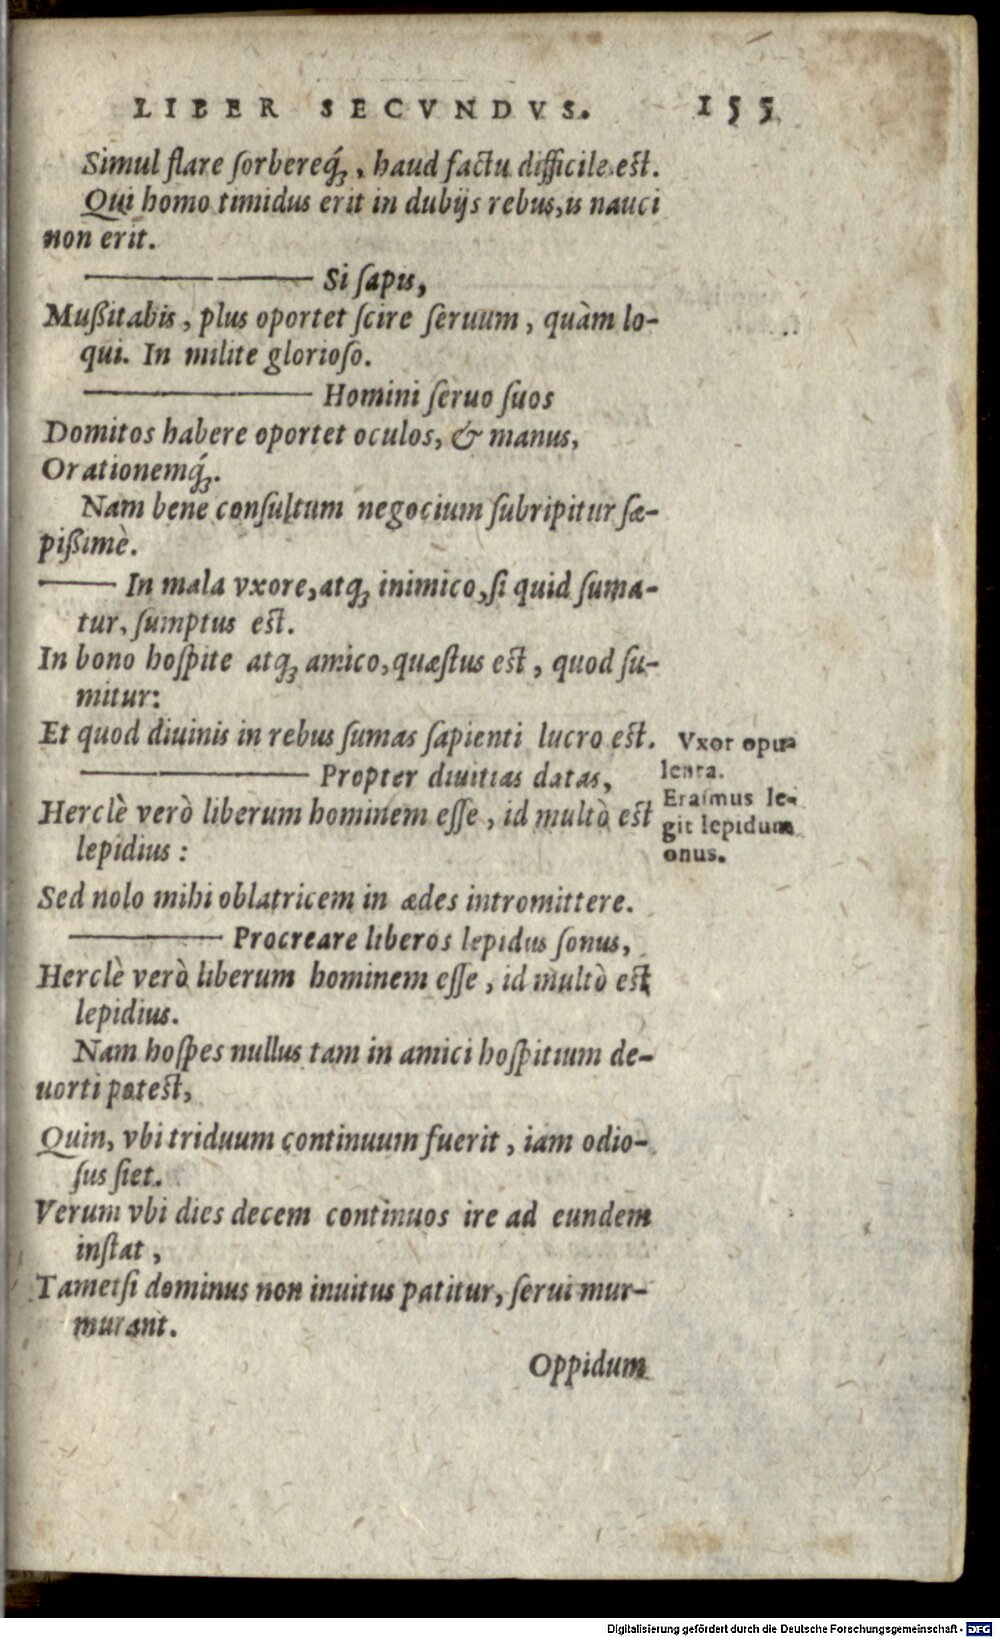 LIBER SECVNDVS. 155
Simul flare ſorbereq́ꝫ, haud factu difficile est.
Qui homo timidus erit in dubijs rebus, is nauci
non erit.
Si ſapis,
Mußitabis, plus oportet ſcire ſeruum, quàm lo-
qui. In milite glorioſo.
Homini ſeruo ſuos
Domitos habere oportet oculos, & manus,
Orationemq́ꝫ.
Nam bene conſultum negocium ſubripitur ſæ-
pißimè.
In mala vxore, atqꝫ inimico, ſi quid ſuma-
tur, ſumptus est.
In bono hoſpite atqꝫ amico, quæſtus est, quod ſu-
mitur:
Et quod diuinis in rebus ſumas ſapienti lucro est.
Propter diuitias datas,
Herclè verò liberum hominem eſſe, id multò est
lepidius:
Sed nolo mihi oblatricem in ædes intromittere.
Procreare liberos lepidus ſonus,
Herclè verò liberum hominem eſſe, id multò est
lepidius.
Nam hoſpes nullus tam in amici hoſpitium de-
uorti potest,
Quin, vbi triduum continuum fuerit, iam odio-
ſus ſiet.
Verum vbi dies decem continuos ire ad eundem
inſtat,
Tametſi dominus non inuitus patitur, ſerui mur-
murant.
Oppidum
Vxor opu-
lenta.
Eraſmus le-
git lepidum
onus.
Digitalisierung gefördert durch die Deutsche Forschungsgemeinschaft - DFG